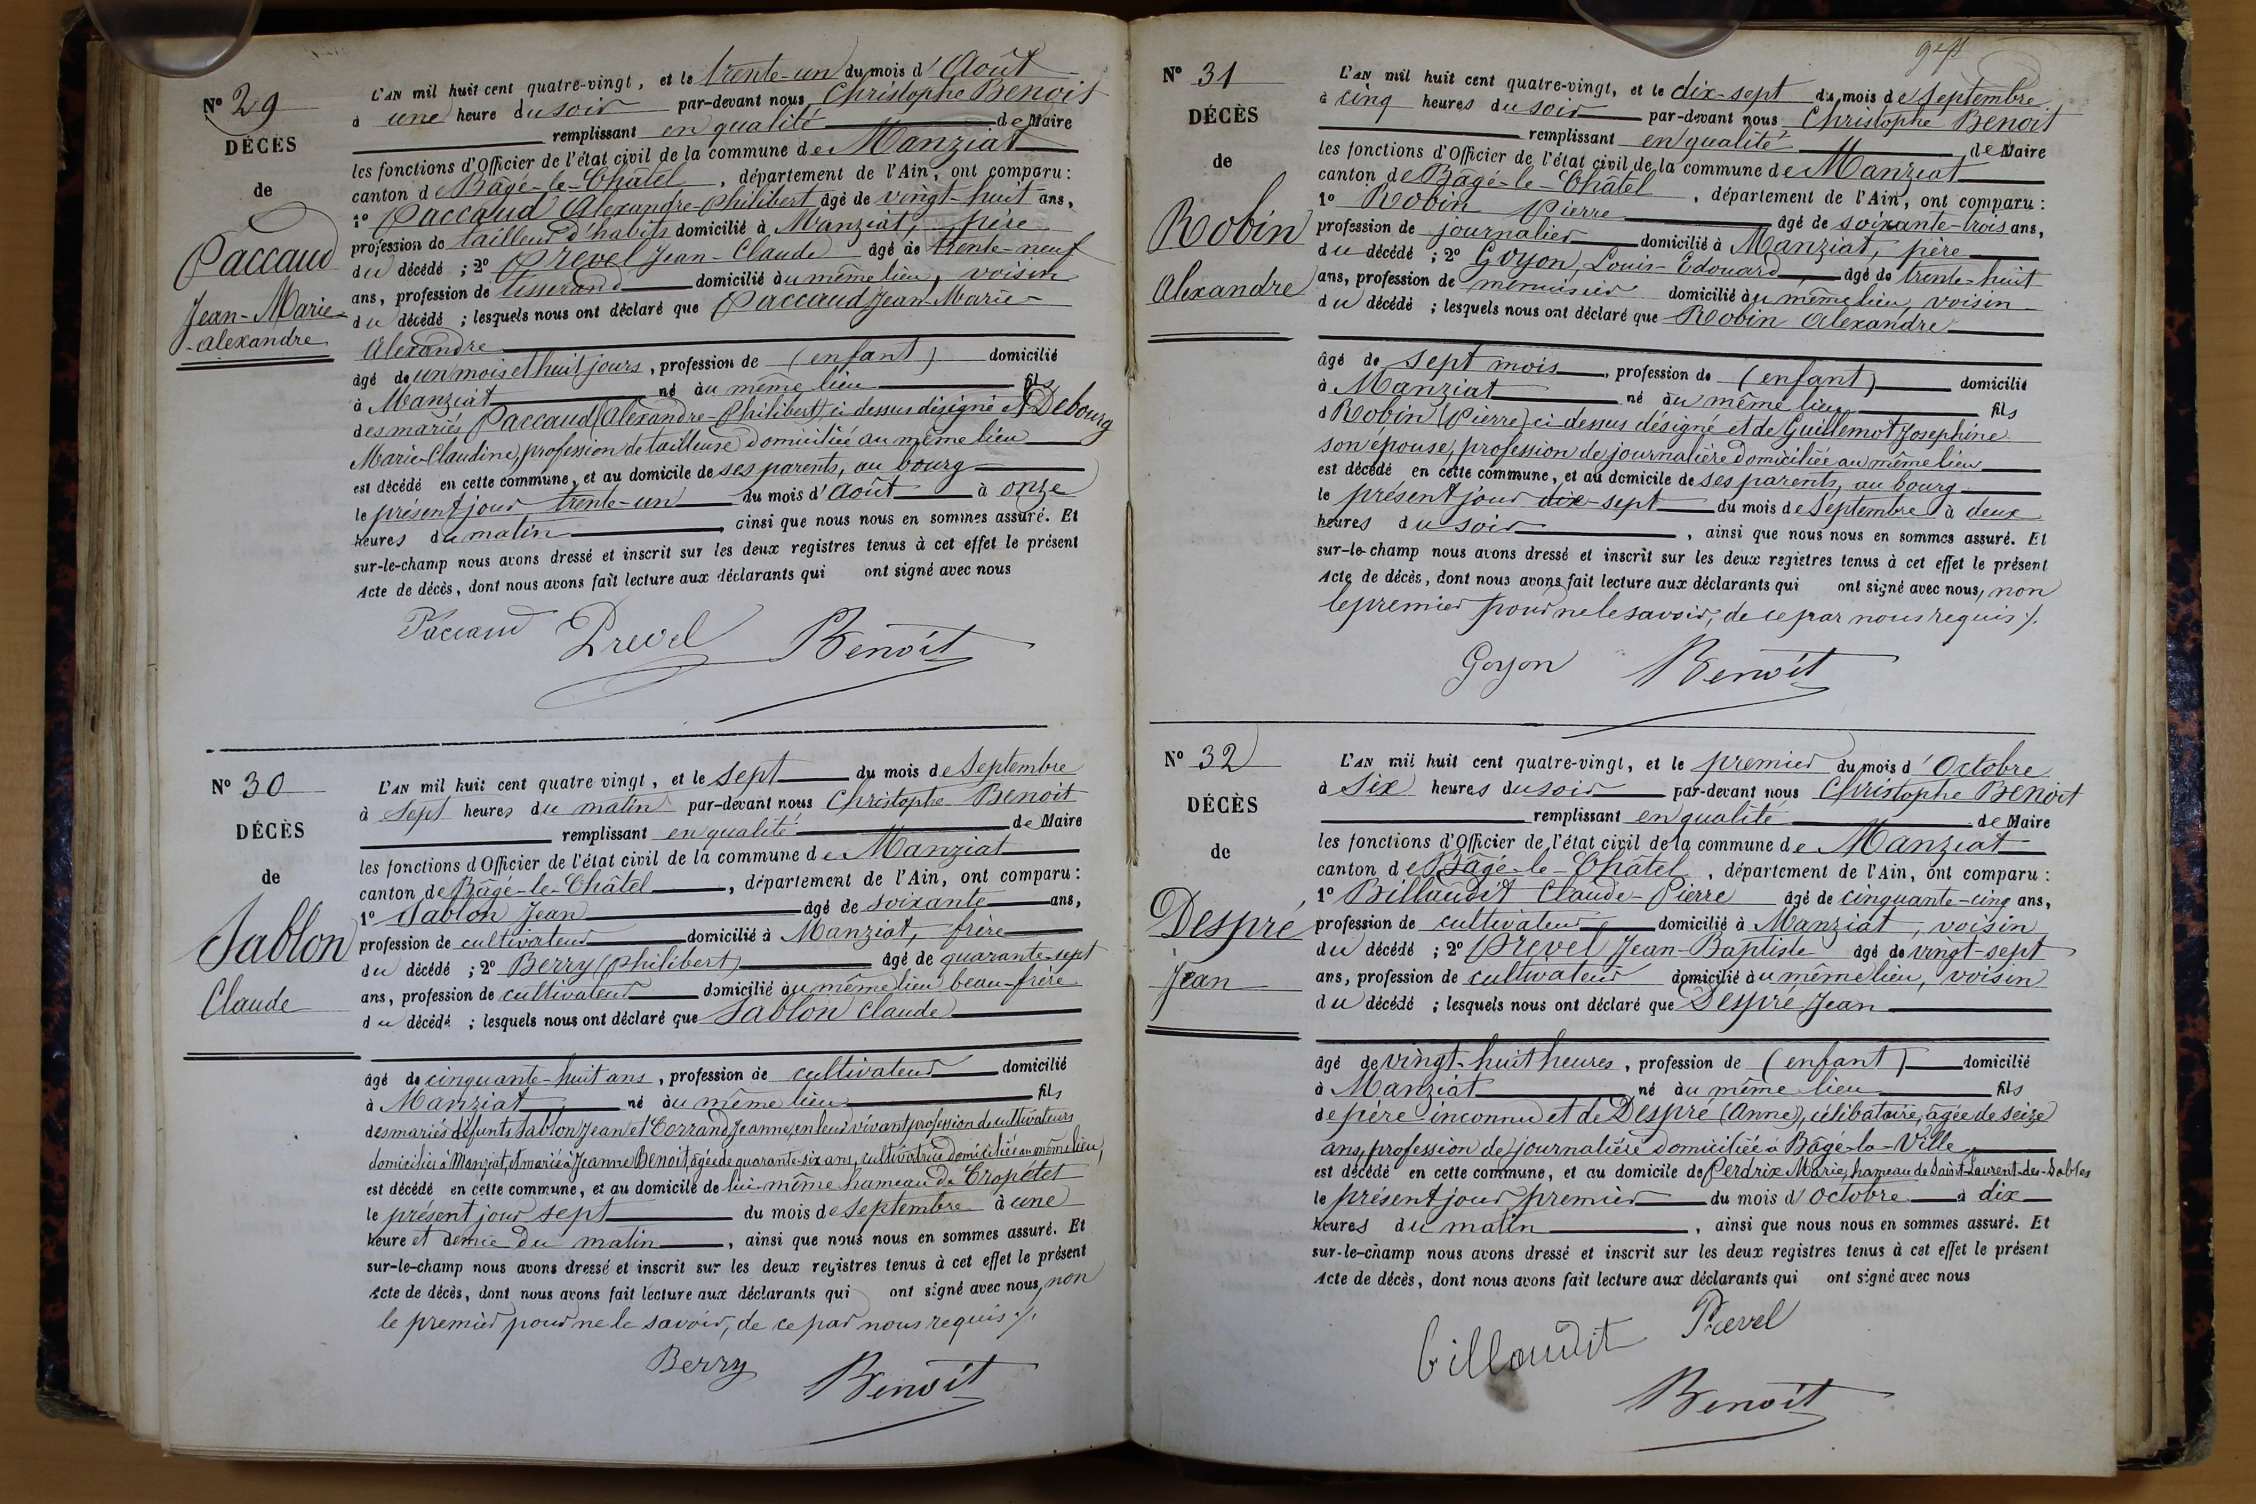 Nº 29
DÉCÈS
de
Paccaud
Jean-Marie-
-Alexandre
L'AN mil huit cent quatre-vingt, et le trente-un du mois d'Août
à une heure du soir par-devant nous Christophe Benoit
remplissant en qualité de Maire
les fonctions d'Officier de l'état civil de la commune de Manziat
canton de Bâgé-le-Châtel, département de l'Ain, ont comparu :
1º Paccaud Alexandre-Philibert âgé de vingt-huit ans,
profession de tailleur d'habits domicilié à Manziat, père
du décédé ; 2º Prevel Jean-Claude âgé de trente-neuf
ans, profession de tisserand domicilié au même lieu, voisin
du décédé ; lesquels nous ont déclaré que Paccaud Jean-Marie-
Alexandre
âgé de un mois et huit jours, profession de (enfant) domicilié
à Manziat né au même lieu fils
des mariés Paccaud (Alexandre-Philibert) ci-dessus désigné et Debourg
Marie-Claudine, profession de tailleuse domiciliée au même lieu
est décédé en cette commune, et au domicile de ses parents, au bourg
le présent jour trente-un du mois d'Août à onze
heures du matin, ainsi que nous nous en sommes assuré. Et
sur-le-champ nous avons dressé et inscrit sur les deux registres tenus à cet effet le présent
Acte de décès, dont nous avons fait lecture aux déclarants qui ont signé avec nous
Paccaud Prevel Benoit
Nº 30
DÉCÈS
de
Sablon
Claude
L'AN mil huit cent quatre-vingt, et le sept du mois de Septembre
à sept heures du matin par-devant nous Christophe Benoit
remplissant en qualité de Maire
les fonctions d'Officier de l'état civil de la commune de Manziat
canton de Bâgé-le-Châtel, département de l'Ain, ont comparu :
1º Sablon Jean âgé de soixante ans,
profession de cultivateur domicilié à Manziat, frère
du décédé ; 2º Berry (Philibert) âgé de quarante-sept
ans, profession de cultivateur domicilié au même lieu beau-frère
du décédé ; lesquels nous ont déclaré que Sablon Claude
âgé de cinquante-huit ans, profession de cultivateur domicilié
à Manziat né au même lieu fils
des mariés défunts Sablon Jean et Corrand Jeanne, en leur vivant profession de cultivateurs
domiciliés à Manziat, et marié à Jeanne Benoit, âgée de quarante-six ans, cultivatrice domiciliée au même lieu,
est décédé en cette commune, et au domicile de lui-même hameau de Cropétet
le présent jour sept du mois de Septembre à une
heure et demie du matin, ainsi que nous nous en sommes assuré. Et
sur-le-champ nous avons dressé et inscrit sur les deux registres tenus à cet effet le présent
Acte de décès, dont nous avons fait lecture aux déclarants qui ont signé avec nous, non
le premier pour ne le savoir, de ce par nous requis %.
Berry Benoit
Nº 31
DÉCÈS
de
Robin
Alexandre
L'AN mil huit cent quatre-vingt, et le dix-sept du mois de Septembre
à cinq heures du soir par-devant nous Christophe Benoit
remplissant en qualité de Maire
les fonctions d'Officier de l'état civil de la commune de Manziat
canton de Bâgé-le-Châtel, département de l'Ain, ont comparu :
1º Robin Pierre âgé de soixante-trois ans,
profession de journalier domicilié à Manziat, père
du décédé ; 2º Goyon, Louis-Edouard âgé de trente-huit
ans, profession de menuisier domicilié au même lieu, voisin
du décédé ; lesquels nous ont déclaré que Robin Alexandre
âgé de sept mois, profession de (enfant) domicilié
à Manziat né au même lieu fils
d Robin (Pierre) ci-dessus désigné et de Guillemot Josephine
son épouse, profession de journalière domiciliée au même lieu
est décédé en cette commune, et au domicile de ses parents, au bourg
le présent jour dix-sept du mois de Septembre à deux
heures du soir, ainsi que nous nous en sommes assuré. Et
sur-le-champ nous avons dressé et inscrit sur les deux registres tenus à cet effet le présent
Acte de décès, dont nous avons fait lecture aux déclarants qui ont signé avec nous, non
le premier pour ne le savoir, de ce par nous requis %.
Goyon Benoit
Nº 32
DÉCÈS
de
Despré
Jean
L'AN mil huit cent quatre-vingt, et le premier du mois d'Octobre
à six heures du soir par-devant nous Christophe Benoit
remplissant en qualité de Maire
les fonctions d'Officier de l'état civil de la commune de Manziat
canton de Bâgé-le-Châtel, département de l'Ain, ont comparu :
1º Billaudit Claude-Pierre âgé de cinquante-cinq ans,
profession de cultivateur domicilié à Manziat, voisin
du décédé ; 2º Prevel Jean-Baptiste âgé de vingt-sept
ans, profession de cultivateur domicilié au même lieu, voisin
du décédé ; lesquels nous ont déclaré que Despré Jean
âgé de vingt-huit heures, profession de (enfant) domicilié
à Manziat né au même lieu fils
de père inconnu et de Despré (Anne), célibataire, âgée de seize
ans, profession de journalière domiciliée à Bâgé-la-Ville
est décédé en cette commune, et au domicile de Perdrix Marie, hameau de Saint-Laurent-des-Sables
le présent jour premier du mois d'Octobre à dix
heures du matin, ainsi que nous nous en sommes assuré. Et
sur-le-champ nous avons dressé et inscrit sur les deux registres tenus à cet effet le présent
Acte de décès, dont nous avons fait lecture aux déclarants qui ont signé avec nous
billaudit Prevel
Benoit